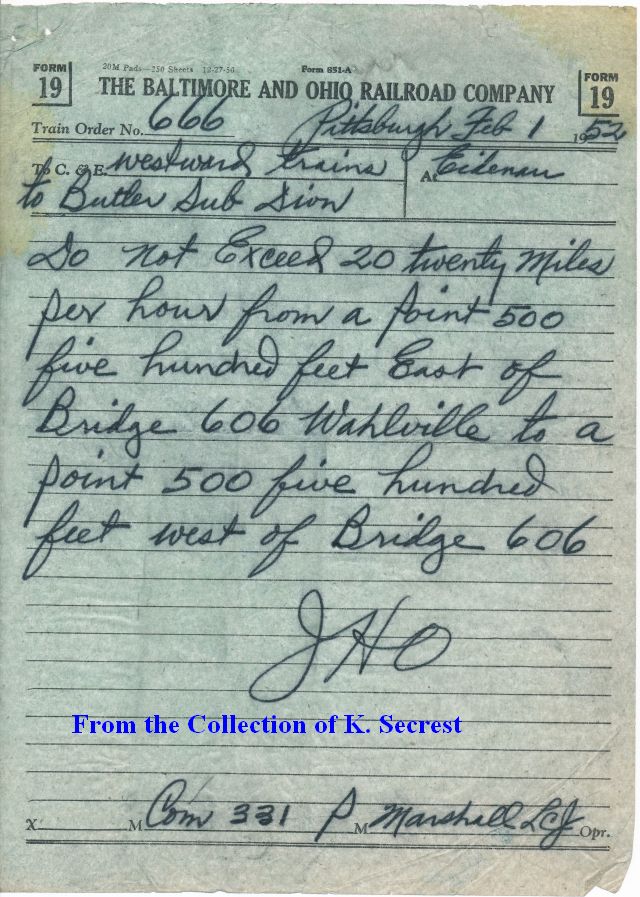 FORM 19
20M Pads—250 Sheets 12-27-50 Form 851-A
THE BALTIMORE AND OHIO RAILROAD COMPANY
FORM 19
Train Order No. 666 Pittsburgh Feb 1 1952
To C. & E. westward trains At Eidenau
to Butler Sub Divn
Do not Exceed 20 twenty Miles
per hour from a point 500
five hundred feet East of
Bridge 606 Wahlville to a
point 500 five hundred
feet west of Bridge 606
JHO
From the Collection of K. Secrest
X M Com 331 P M Marshall Opr.